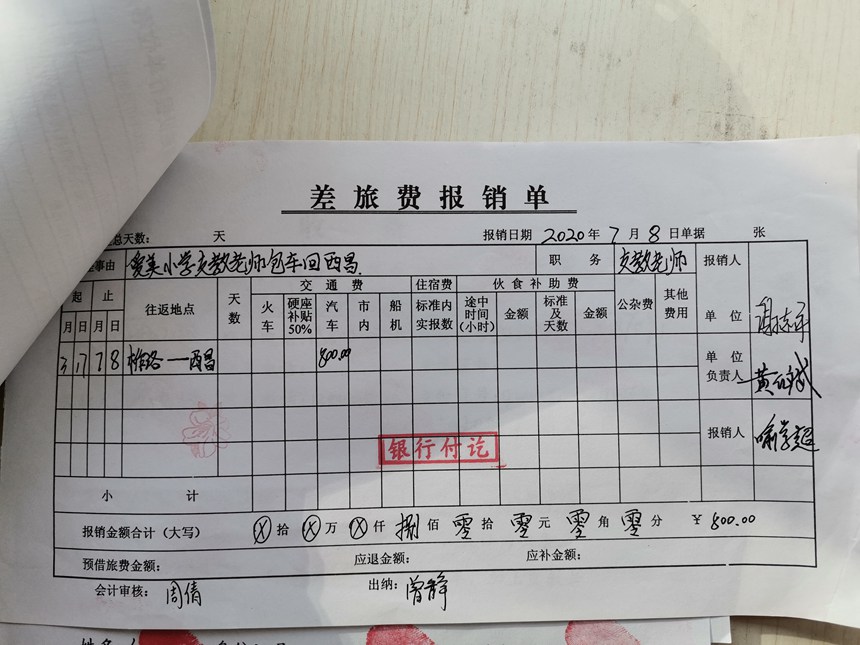 差旅费报销单
总天数： 天 报销日期 2020 年 7 月 8 日单据 张
事由 爱美小学支教老师包车回西昌. 职务 支教老师 报销人
起 止 往返地点 天数 交通费 住宿费 伙食补助费 公杂费 其他费用 单位
月 日 月 日 火车 硬座补贴50% 汽车 市内 船机 标准内实报数 途中时间(小时) 金额 标准及天数 金额
3 17 7 8 — 西昌 800.00 单位负责人 黄
报销人 喻学超
银行付讫
小计
报销金额合计（大写） ⓧ 拾 ⓧ 万 ⓧ 仟 捌 佰 零 拾 零 元 零 角 零 分 ￥ 800.00
预借旅费金额： 应退金额： 应补金额：
会计审核： 周倩 出纳： 曾静